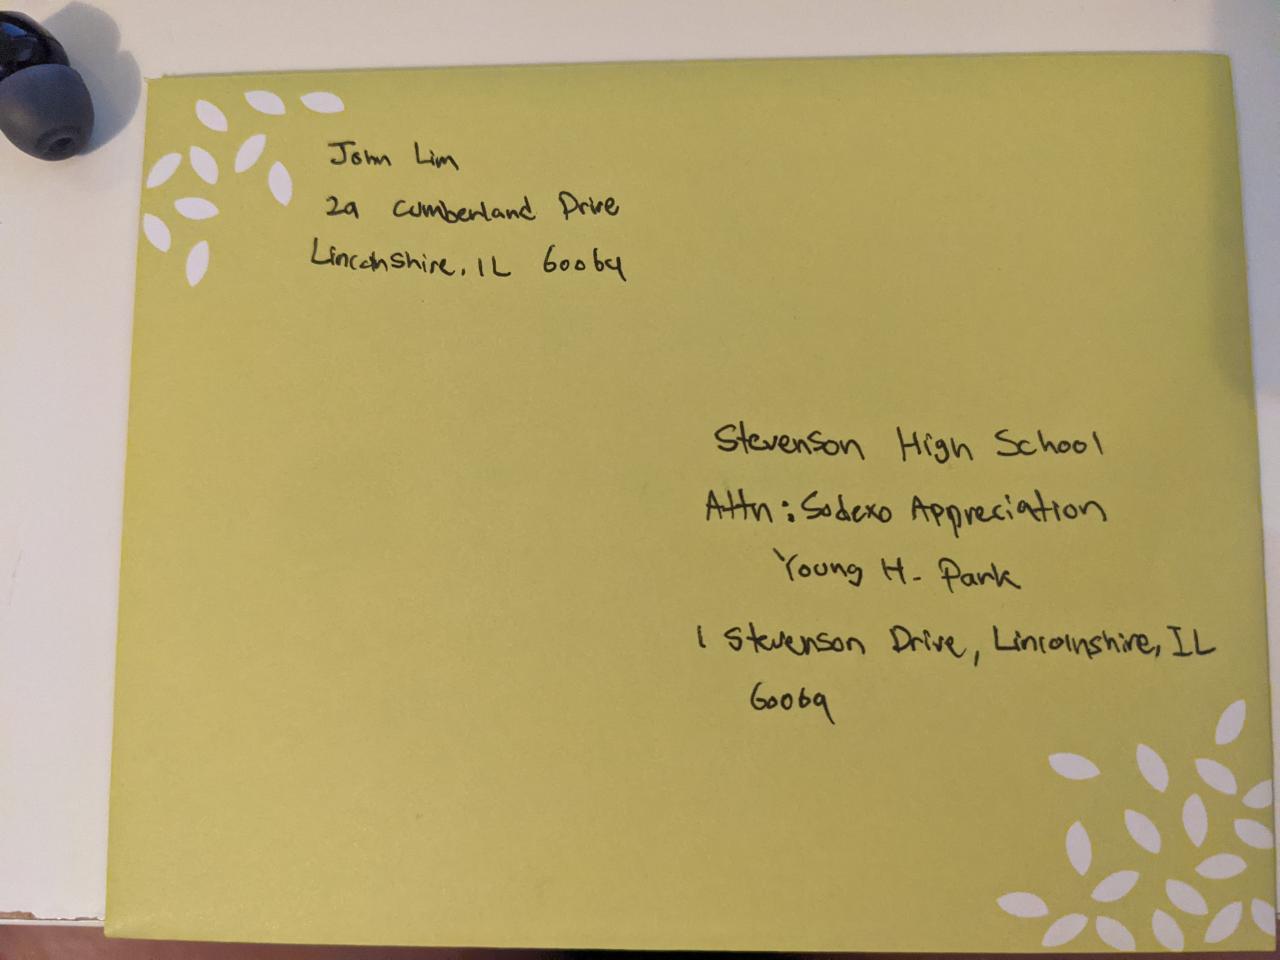 John Lim
29 Cumberland Drive
Lincolnshire, IL 60069
Stevenson High School
Attn: Sodexo Appreciation
Young H. Park
1 Stevenson Drive, Lincolnshire, IL
60069